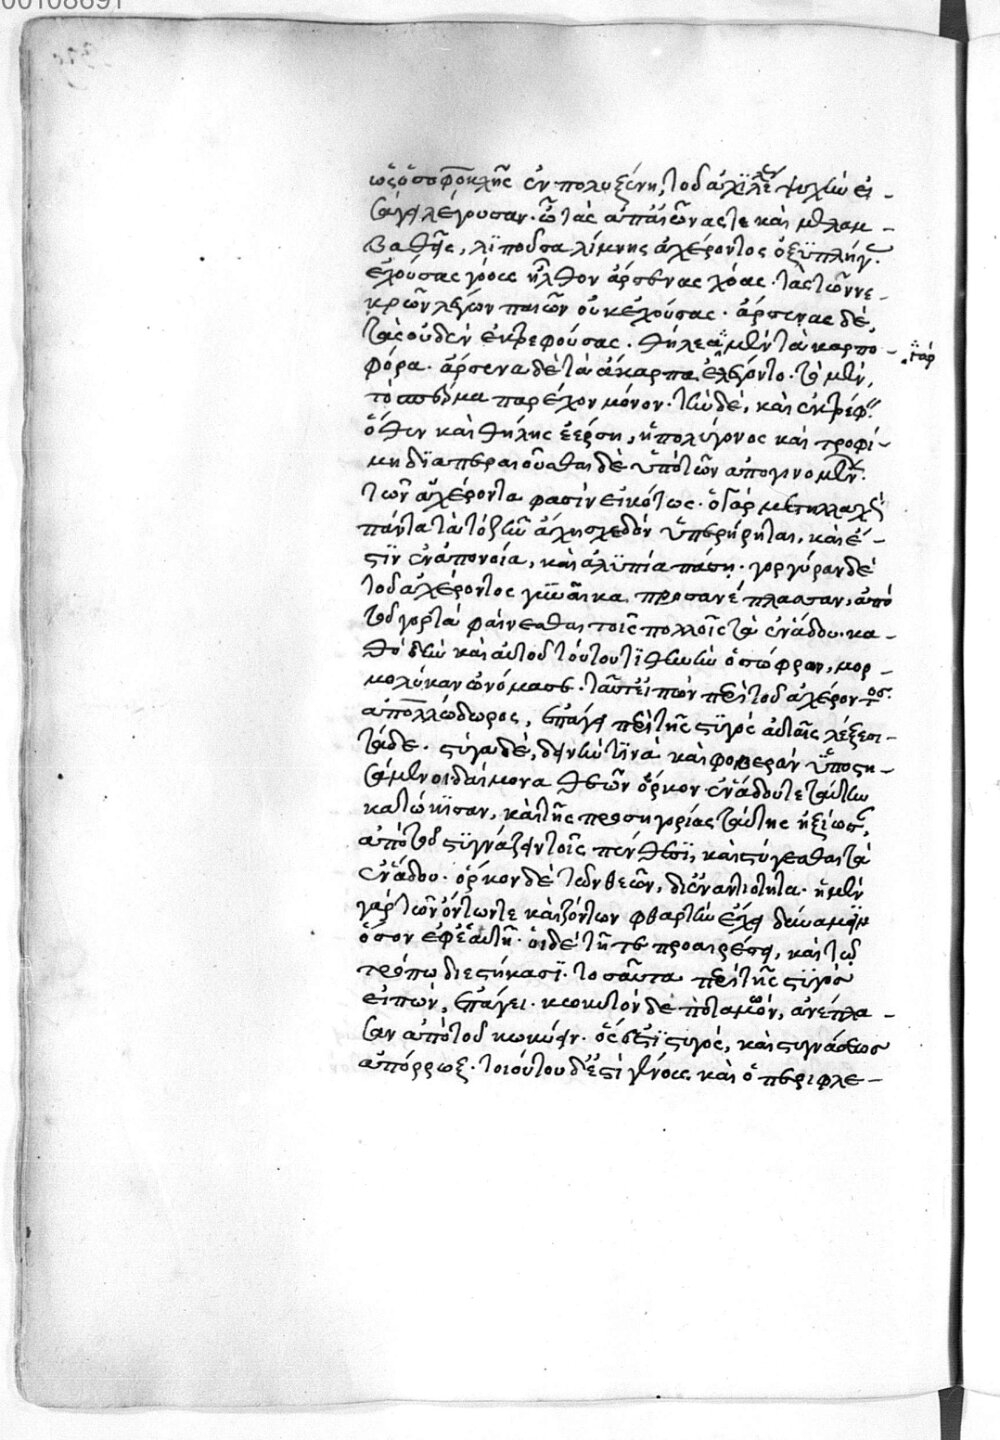 00108691
ὡς ὁ σοφοκλῆς ἐν πολυξένη, τοῦ ἀχιλλέως ψυχὴν εἰ-
σάγει λέγουσαν. ὦ τὰς ἀπαίωνάς τε καὶ μελαμ-
βαθῆς, λιποῦσα λίμνης ἀχέροντος ὀξυπλῆγ.
ἐχούσας γόους ἦλθον ἄρσενας χόας. τὰς τῶν νε-
κρῶν λέγων παιῶν οὐκ ἐχούσας. ἄρσενας δὲ,
τὰς οὐδὲν ἐκτρεφούσας. θήλεα μὲν τὰ καρπο-
γὰρ
φόρα. ἄρσενα δὲ τὰ ἄκαρπα ἐλέγοντο. τὸ μὲν,
τὸ σπέρμα παρέχον μόνον. τὴν δὲ, καὶ ἐκτρέφ.
ὅθεν καὶ θῆλης ἐέρση, ἡ πολύγονος καὶ τροφί-
μη διαπεραιοῦσθαι δὲ ὑπὸ τῶν ἀπογινομέν.
τῶν ἀχέροντα φασὶν εἰκότως. ὁ γὰρ μετηλλαχὼς
πάντα τὰ τοῦ ζῆν ἄχη σχεδὸν ὑπερήρηται, καὶ ἔ-
στιν ἐν ἀπονοία, καὶ ἀλυπία πάση. γοργύραν δὲ
τοῦ ἀχέροντος γυναῖκα προσανέπλασαν, ἀπὸ
τοῦ γοργὰ φαίνεσθαι τοῖς πολλοῖς τὰ ἐν ἅδου. κα-
θὸ δὴν καὶ αὐτοῦ τούτου τιθηνὴν ὁ σώφρων, μορ-
μολύκαν ὠνόμασε. ταῦτ εἰπὼν περὶ τοῦ ἀχέροντος
ἀπολλόδωρος, ἐπάγει περὶ τῆς στυγὸς αὐταῖς λέξεσι-
τάδε. στύγα δὲ, δεινήν τινα καὶ φοβερὰν ὑποστη-
σάμενοι δαίμονα θεῶν ὅρκον ἐν ἅδου τε ταύτην
κατώκισαν, καὶ τῆς προσηγορίας ταύτης ἠξίωσ.
ἀπὸ τοῦ στυγνάζειν τοῖς πένθεσι, καὶ στύγεσθαι τὰ
ἐν ἅδου. ὅρκον δὲ τῶν θεῶν, δι ἐναντιότητα. ἡ μὲν
γὰρ τῶν ὄντων τε καὶ ζόντων φθαρτὴν ἔχει δύναμιν
ὅσον ἐφ ἑαυτῆ. οἱ δὲ τῆ τε προαιρέσει, καὶ τῶ
τρόπω διεστήκασι. τοσαῦτα περὶ τῆς στυγὸς
εἰπὼν, ἐπάγει. κωκυτὸν δὲ ποταμὸν, ἀνέπλα-
σαν ἀπὸ τοῦ κωκύειν. ὅς ἐστι στυγὸς, καὶ στυγνάσεως
ἀπόρρωξ. τοιούτου δ ἐστὶ γένους καὶ ὁ περιφλε-